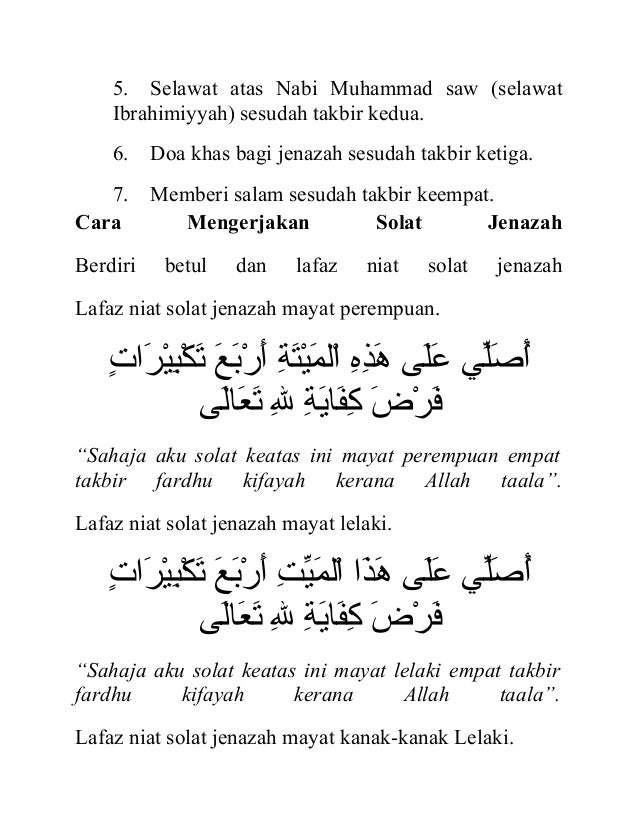 5. Selawat atas Nabi Muhammad saw (selawat
Ibrahimiyyah) sesudah takbir kedua.
6. Doa khas bagi jenazah sesudah takbir ketiga.
7. Memberi salam sesudah takbir keempat.
Cara Mengerjakan Solat Jenazah
Berdiri betul dan lafaz niat solat jenazah
Lafaz niat solat jenazah mayat perempuan.
أُصَلِّي عَلَى هَذِهِ الْمَيْتَةِ أَرْبَعَ تَكْبِيْرَاتٍ
فَرْضَ كِفَايَةِ للهِ تَعَالَى
“Sahaja aku solat keatas ini mayat perempuan empat
takbir fardhu kifayah kerana Allah taala”.
Lafaz niat solat jenazah mayat lelaki.
أُصَلِّي عَلَى هَذَا الْمَيِّتِ أَرْبَعَ تَكْبِيْرَاتٍ
فَرْضَ كِفَايَةِ للهِ تَعَالَى
“Sahaja aku solat keatas ini mayat lelaki empat takbir
fardhu kifayah kerana Allah taala”.
Lafaz niat solat jenazah mayat kanak-kanak Lelaki.